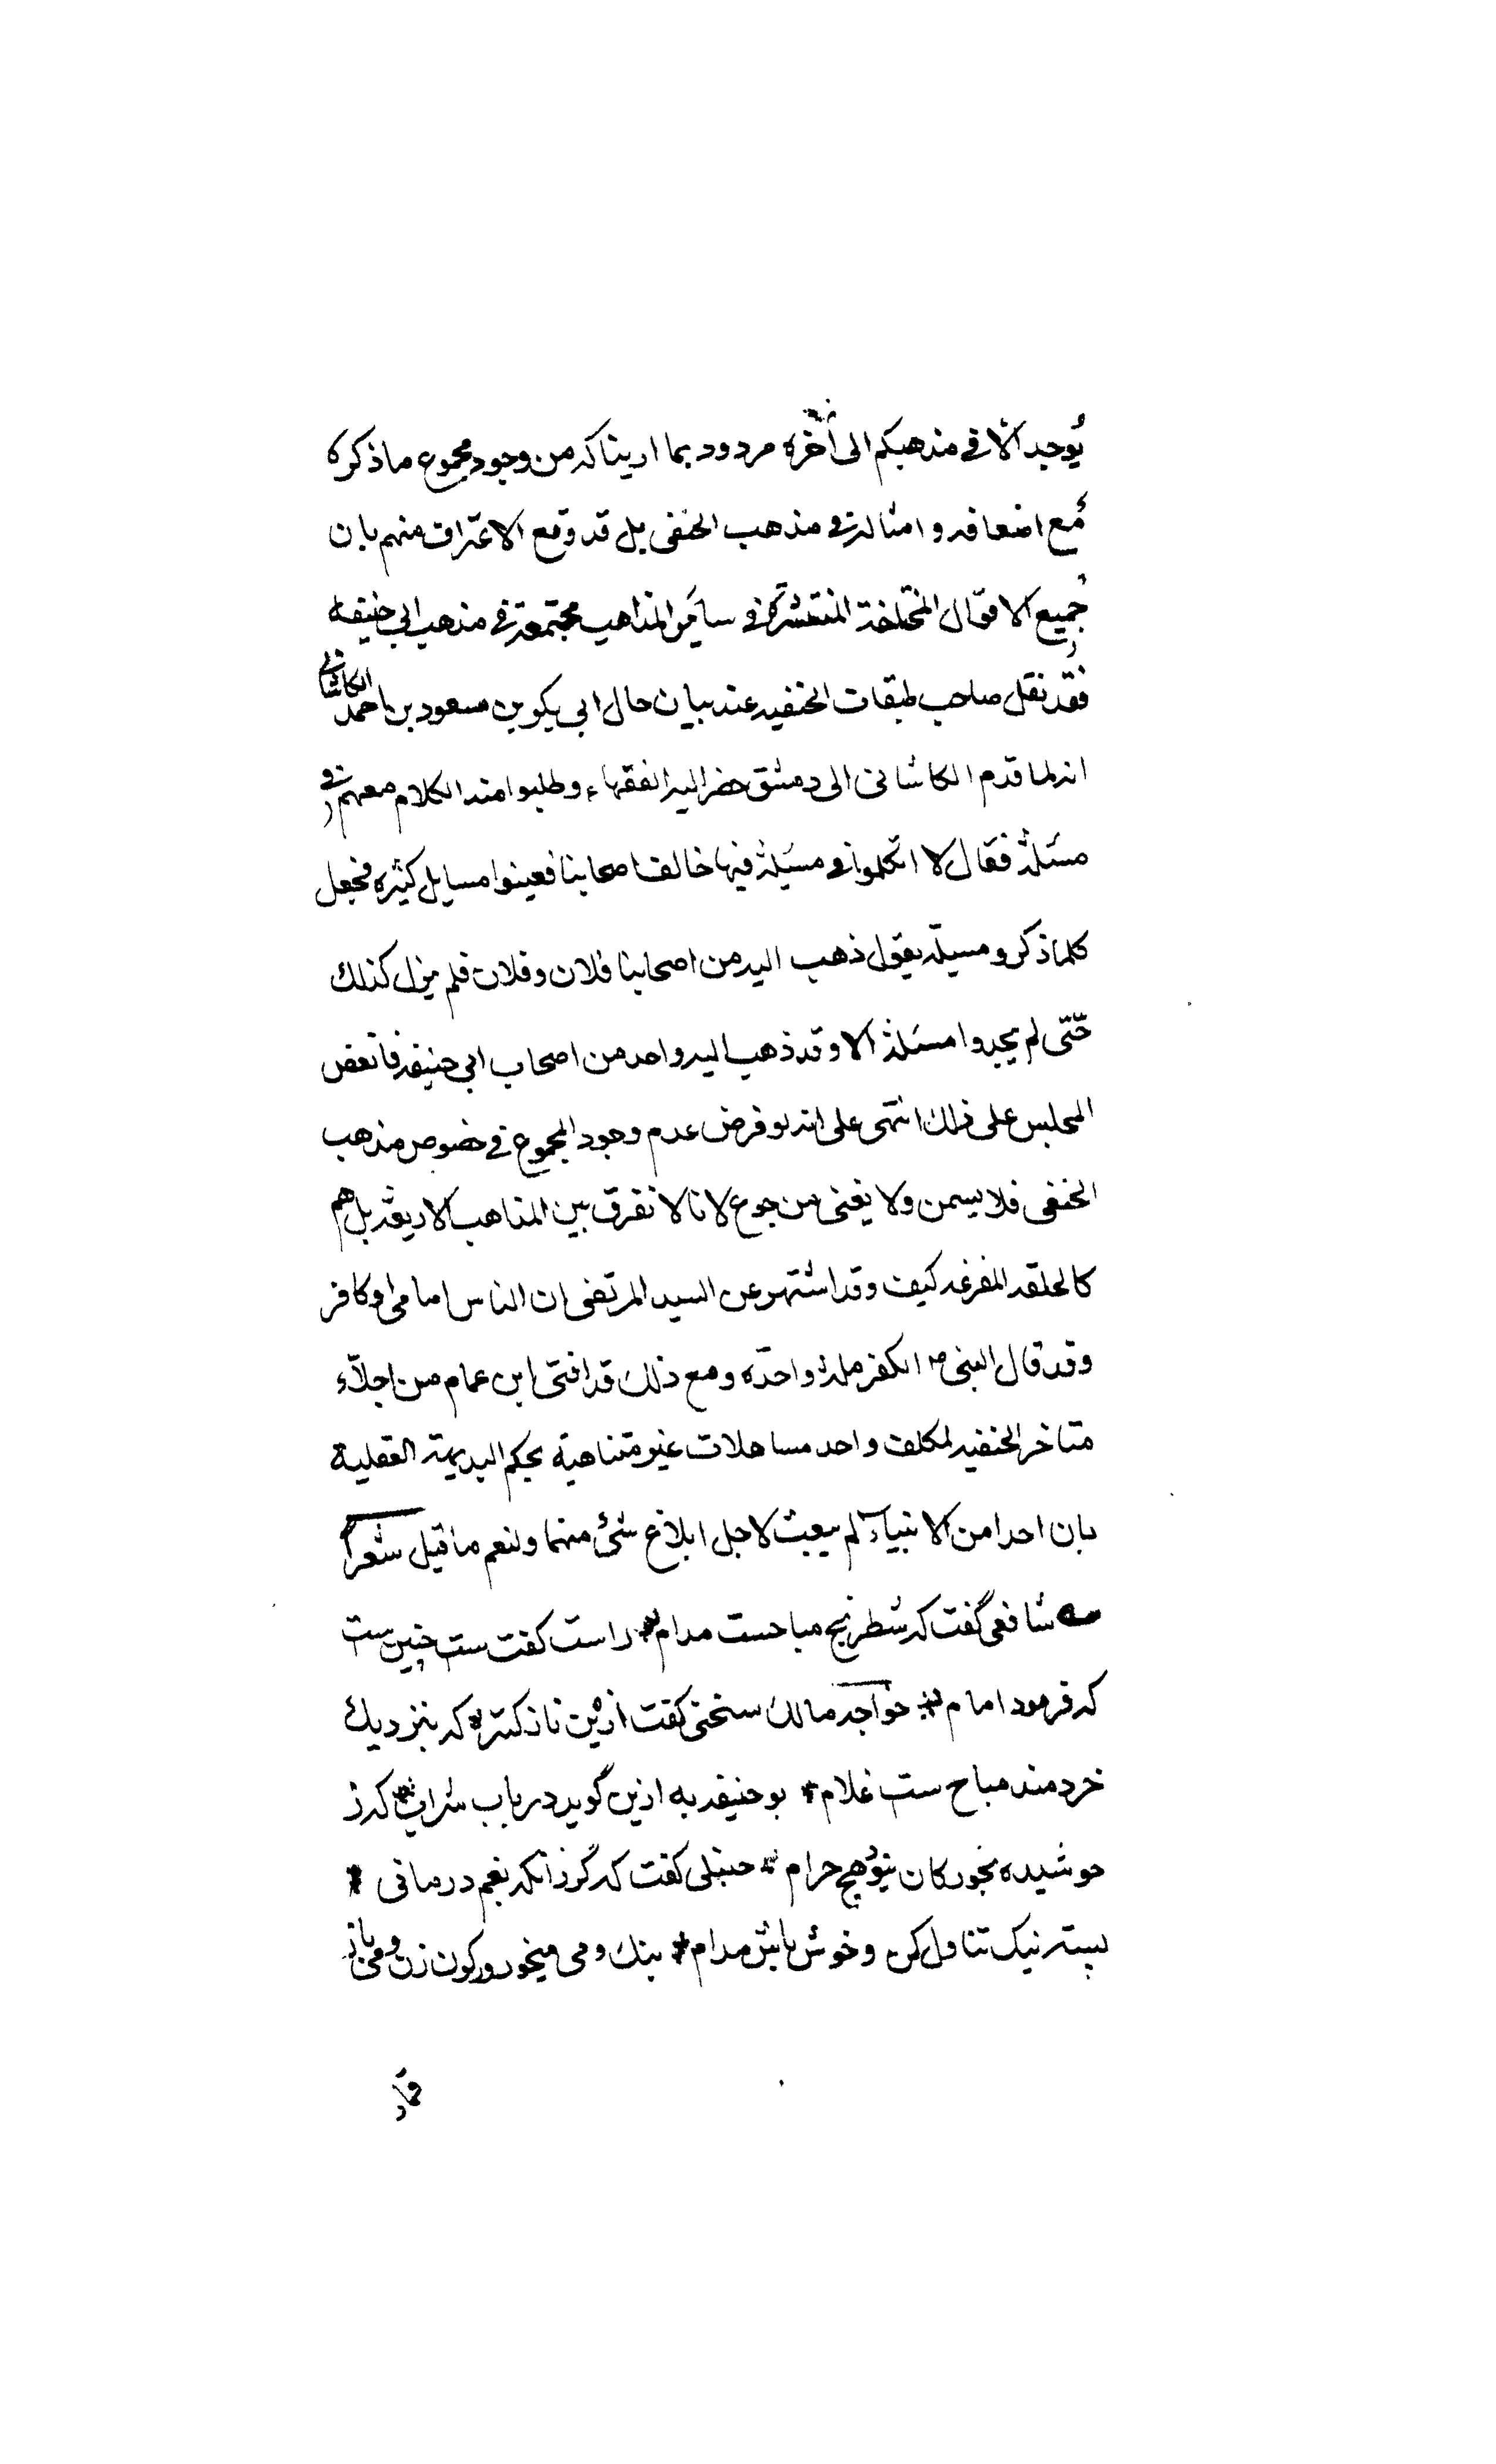 يوجد الا في مذهبكم الى آخره مردود بما اريناكه من وجود مجموع ما ذكره
مع اضعافه و امثاله في مذهب الحنفى بل قد وقع الاعتراف منهم بان
جميع الاقوال المختلفة المنتشرة في ساير المذاهب مجتمعة في مذهب ابي حنيفه
فقد نقل صاحب طبقات الحنفيه عند بيان حال ابي بكر بن مسعود بن احمد الكاشاني
انه لما قدم الكاشانى الى دمشق حضر اليه الفقهاء وطلبوا منه الكلام معهم في
مسئلة فقال لا اتكلم في مسئلة فيها خالف اصحابنا فعينوا مسايل كثيره فجعل
كلما ذكرو مسيلة يقول ذهب اليه من اصحابنا فلان وفلان فلم يزل كذلك
حتّى لم يجدوا مسئلة الا وقد ذهب اليه واحد من اصحاب ابى حنيفه فانفض
المجلس على ذلك انتهى على انه لو فرض عدم وجود المجموع في خصوص مذهب
الحنفى فلا يسمن ولا يغنى من جوع لانا لا نفرق بين المذاهب الاربعة بل هم
كالحلقه المفرغه كيف وقد اشتهر عن السيد المرتضى ان الناس امامى او كافر
وقد قال النبى ص الكفر ملة واحدّه ومع ذلك قد افتى ابن همام من اجلّاء
متاخر الحنفيه لمكلف واحد مساهلات غير متناهية بحكم البديهة العقلية
بان احدا من الانبياء لم يبعث لاجل ابلاغ شئ منها ولنعم ما قيل شعر
شافعى گفت كه شطرنج مباحست مدام راست كفت ست چنين ست
كه فرمود امام خواجه مالك سخنى كفت ازين نازكتر كه بنزديك
خردمند مباح ست غلام بو حنيفه به ازين گويد در باب شراب كه ز
جوشيده بخور كان نبود هيچ حرام حنبلى كفت كه گر زانكه بغم درمانى
بسته نيک تناول كن و خوش باش مدام بنك ومى ميخور و كون زن ومى باز
قمار